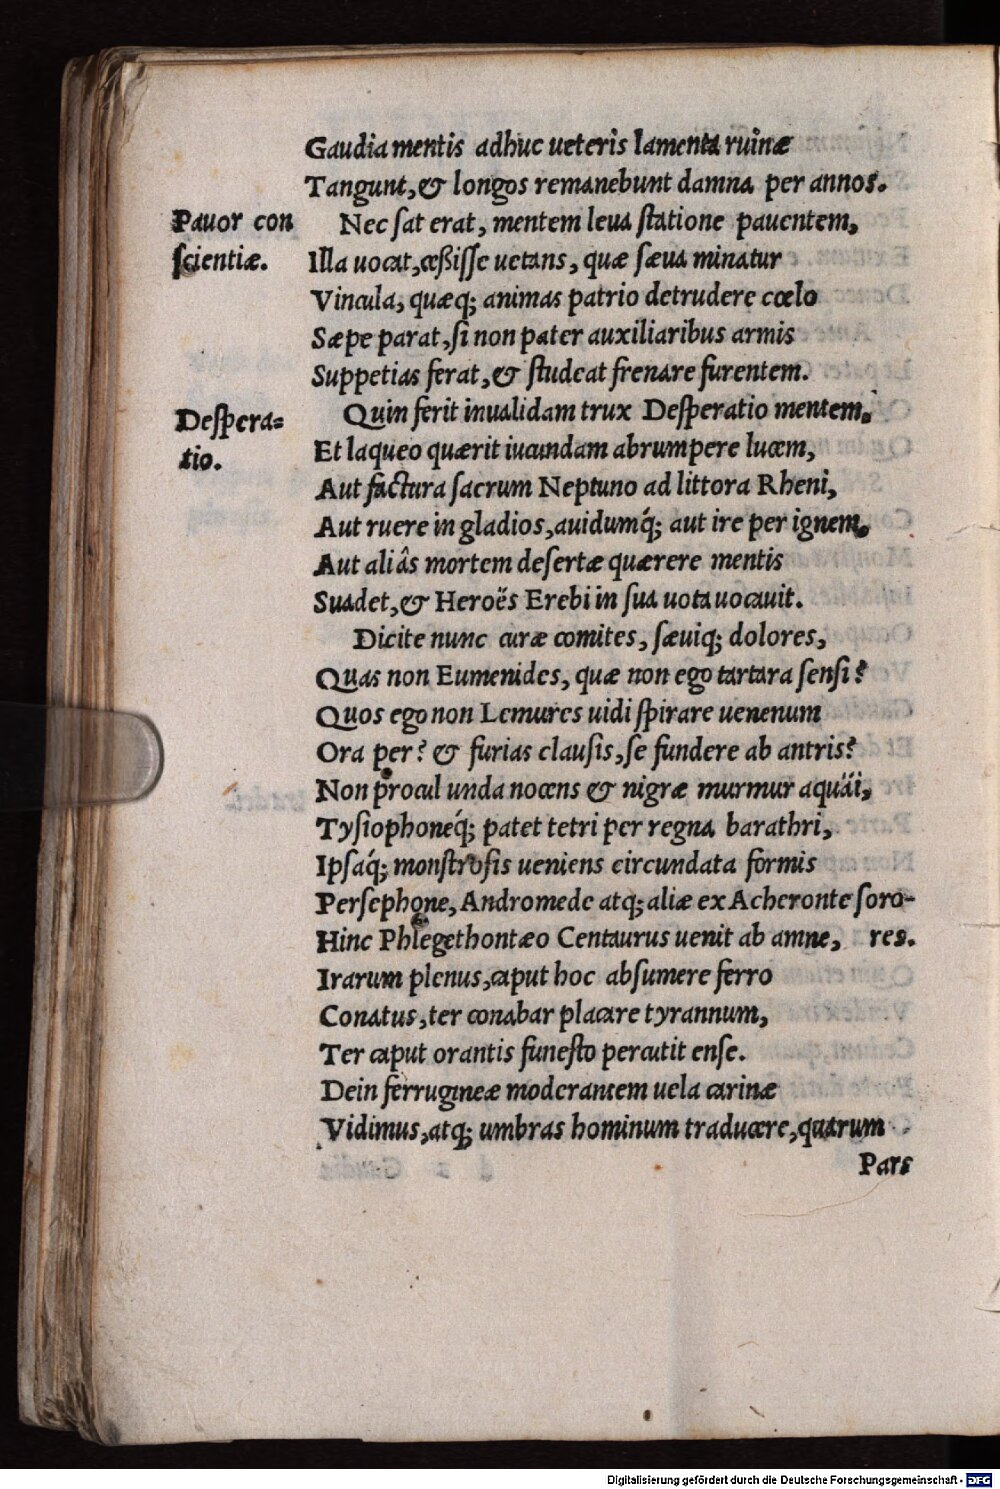 Gaudia mentis adhuc ueteris lamenta ruinæ
Tangunt, & longos remanebunt damna per annos.
Pauor con
ſcientiæ.
Nec ſat erat, mentem leua ſtatione pauentem,
Illa uocat, ceßiſſe uetans, quæ ſæua minatur
Vincula, quæq; animas patrio detrudere cœlo
Sæpe parat, ſi non pater auxiliaribus armis
Suppetias ferat, & ſtudeat frenare furentem.
Deſpera=
tio.
Quin ferit inualidam trux Deſperatio mentem.
Et laqueo quærit iucundam abrumpere lucem,
Aut factura ſacrum Neptuno ad littora Rheni,
Aut ruere in gladios, auidumq́; aut ire per ignem.
Aut aliâs mortem deſertæ quærere mentis
Suadet, & Heroës Erebi in ſua uota uocauit.
Dicite nunc curæ comites, ſæuiq; dolores,
Quas non Eumenides, quæ non ego tartara ſenſi?
Quos ego non Lemures uidi ſpirare uenenum
Ora per? & furias clauſis, ſe fundere ab antris?
Non procul unda nocens & nigræ murmur aquäi,
Tyſiophoneq́; patet tetri per regna barathri,
Ipſaq́; monſtroſis ueniens circundata formis
Perſephone, Andromede atq; aliæ ex Acheronte ſoro-
Hinc Phlegethontæo Centaurus uenit ab amne, res.
Irarum plenus, caput hoc abſumere ferro
Conatus, ter conabar placare tyrannum,
Ter caput orantis funeſto percutit enſe.
Dein ferrugineæ moderantem uela carinæ
Vidimus, atq; umbras hominum traducere, quarum
Pars
Digitalisierung gefördert durch die Deutsche Forschungsgemeinschaft - DFG